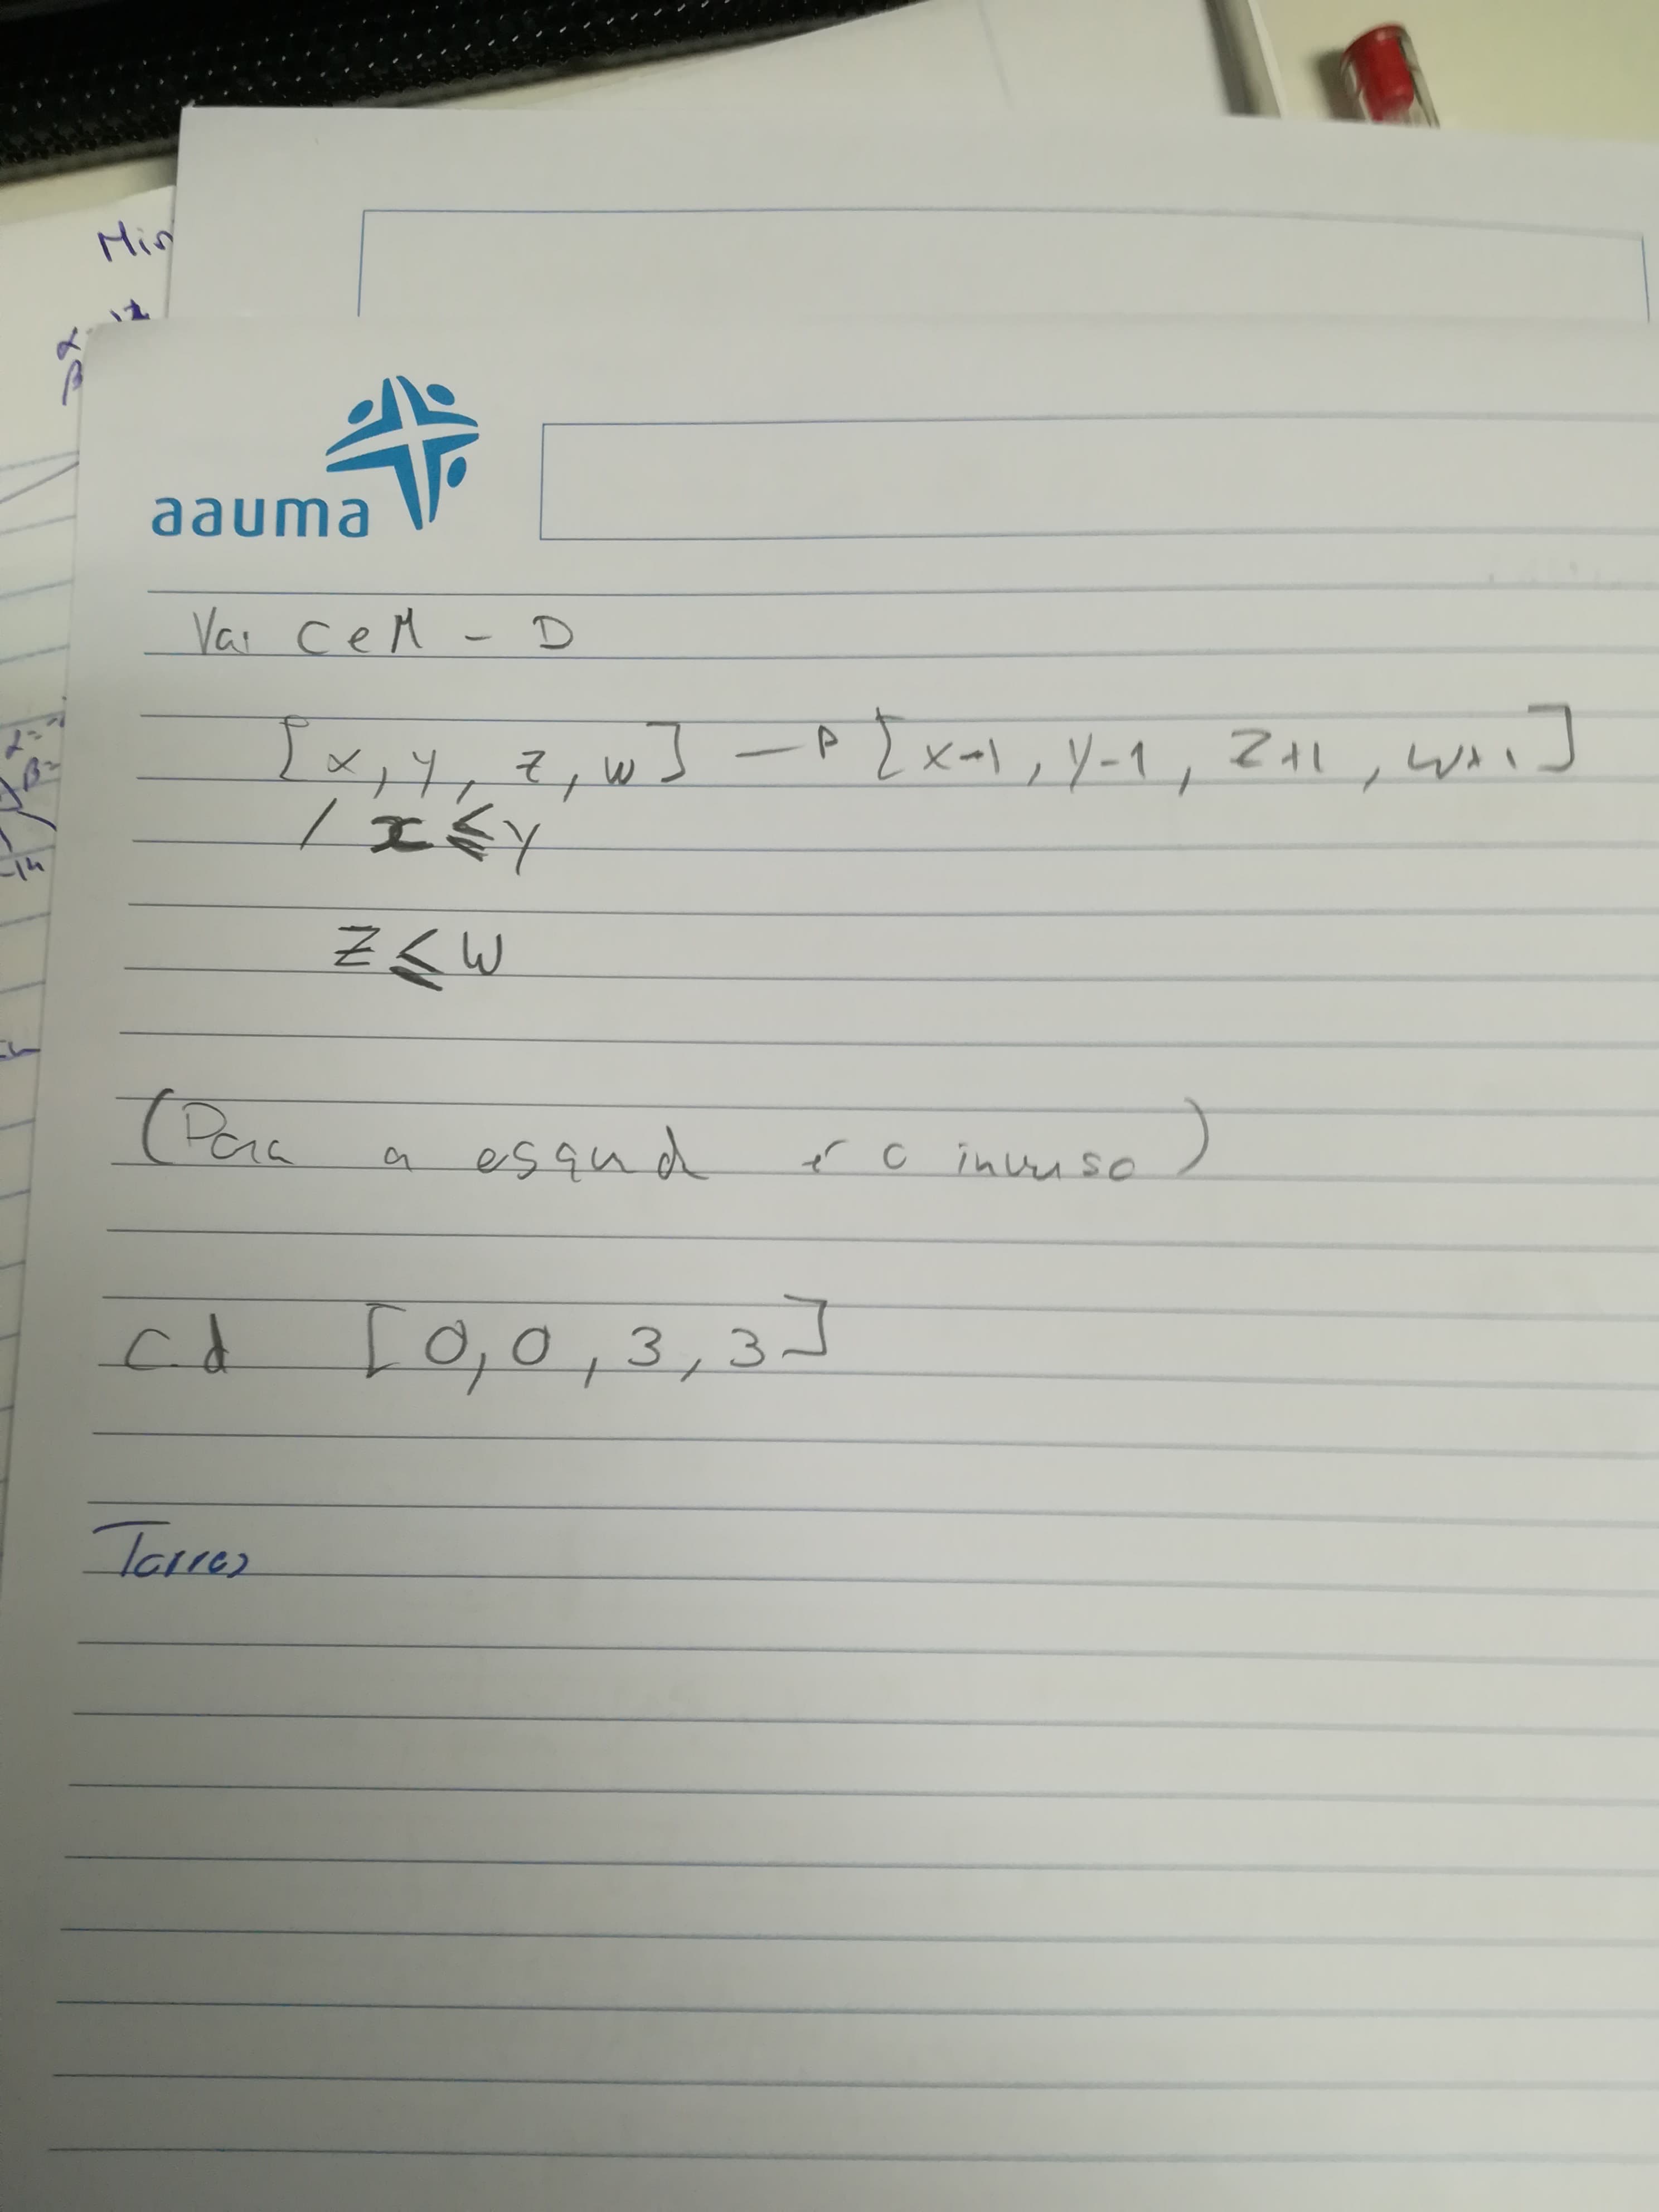 Min
α
β
aauma
Vai C e M - D
[x, y, z, w] → [x-1, y-1, z+1, w+1]
/ x ≤ y
z ≤ w
(Para a esqud é o inverso)
cd [0, 0, 3, 3]
Torres
α=
β=
-14